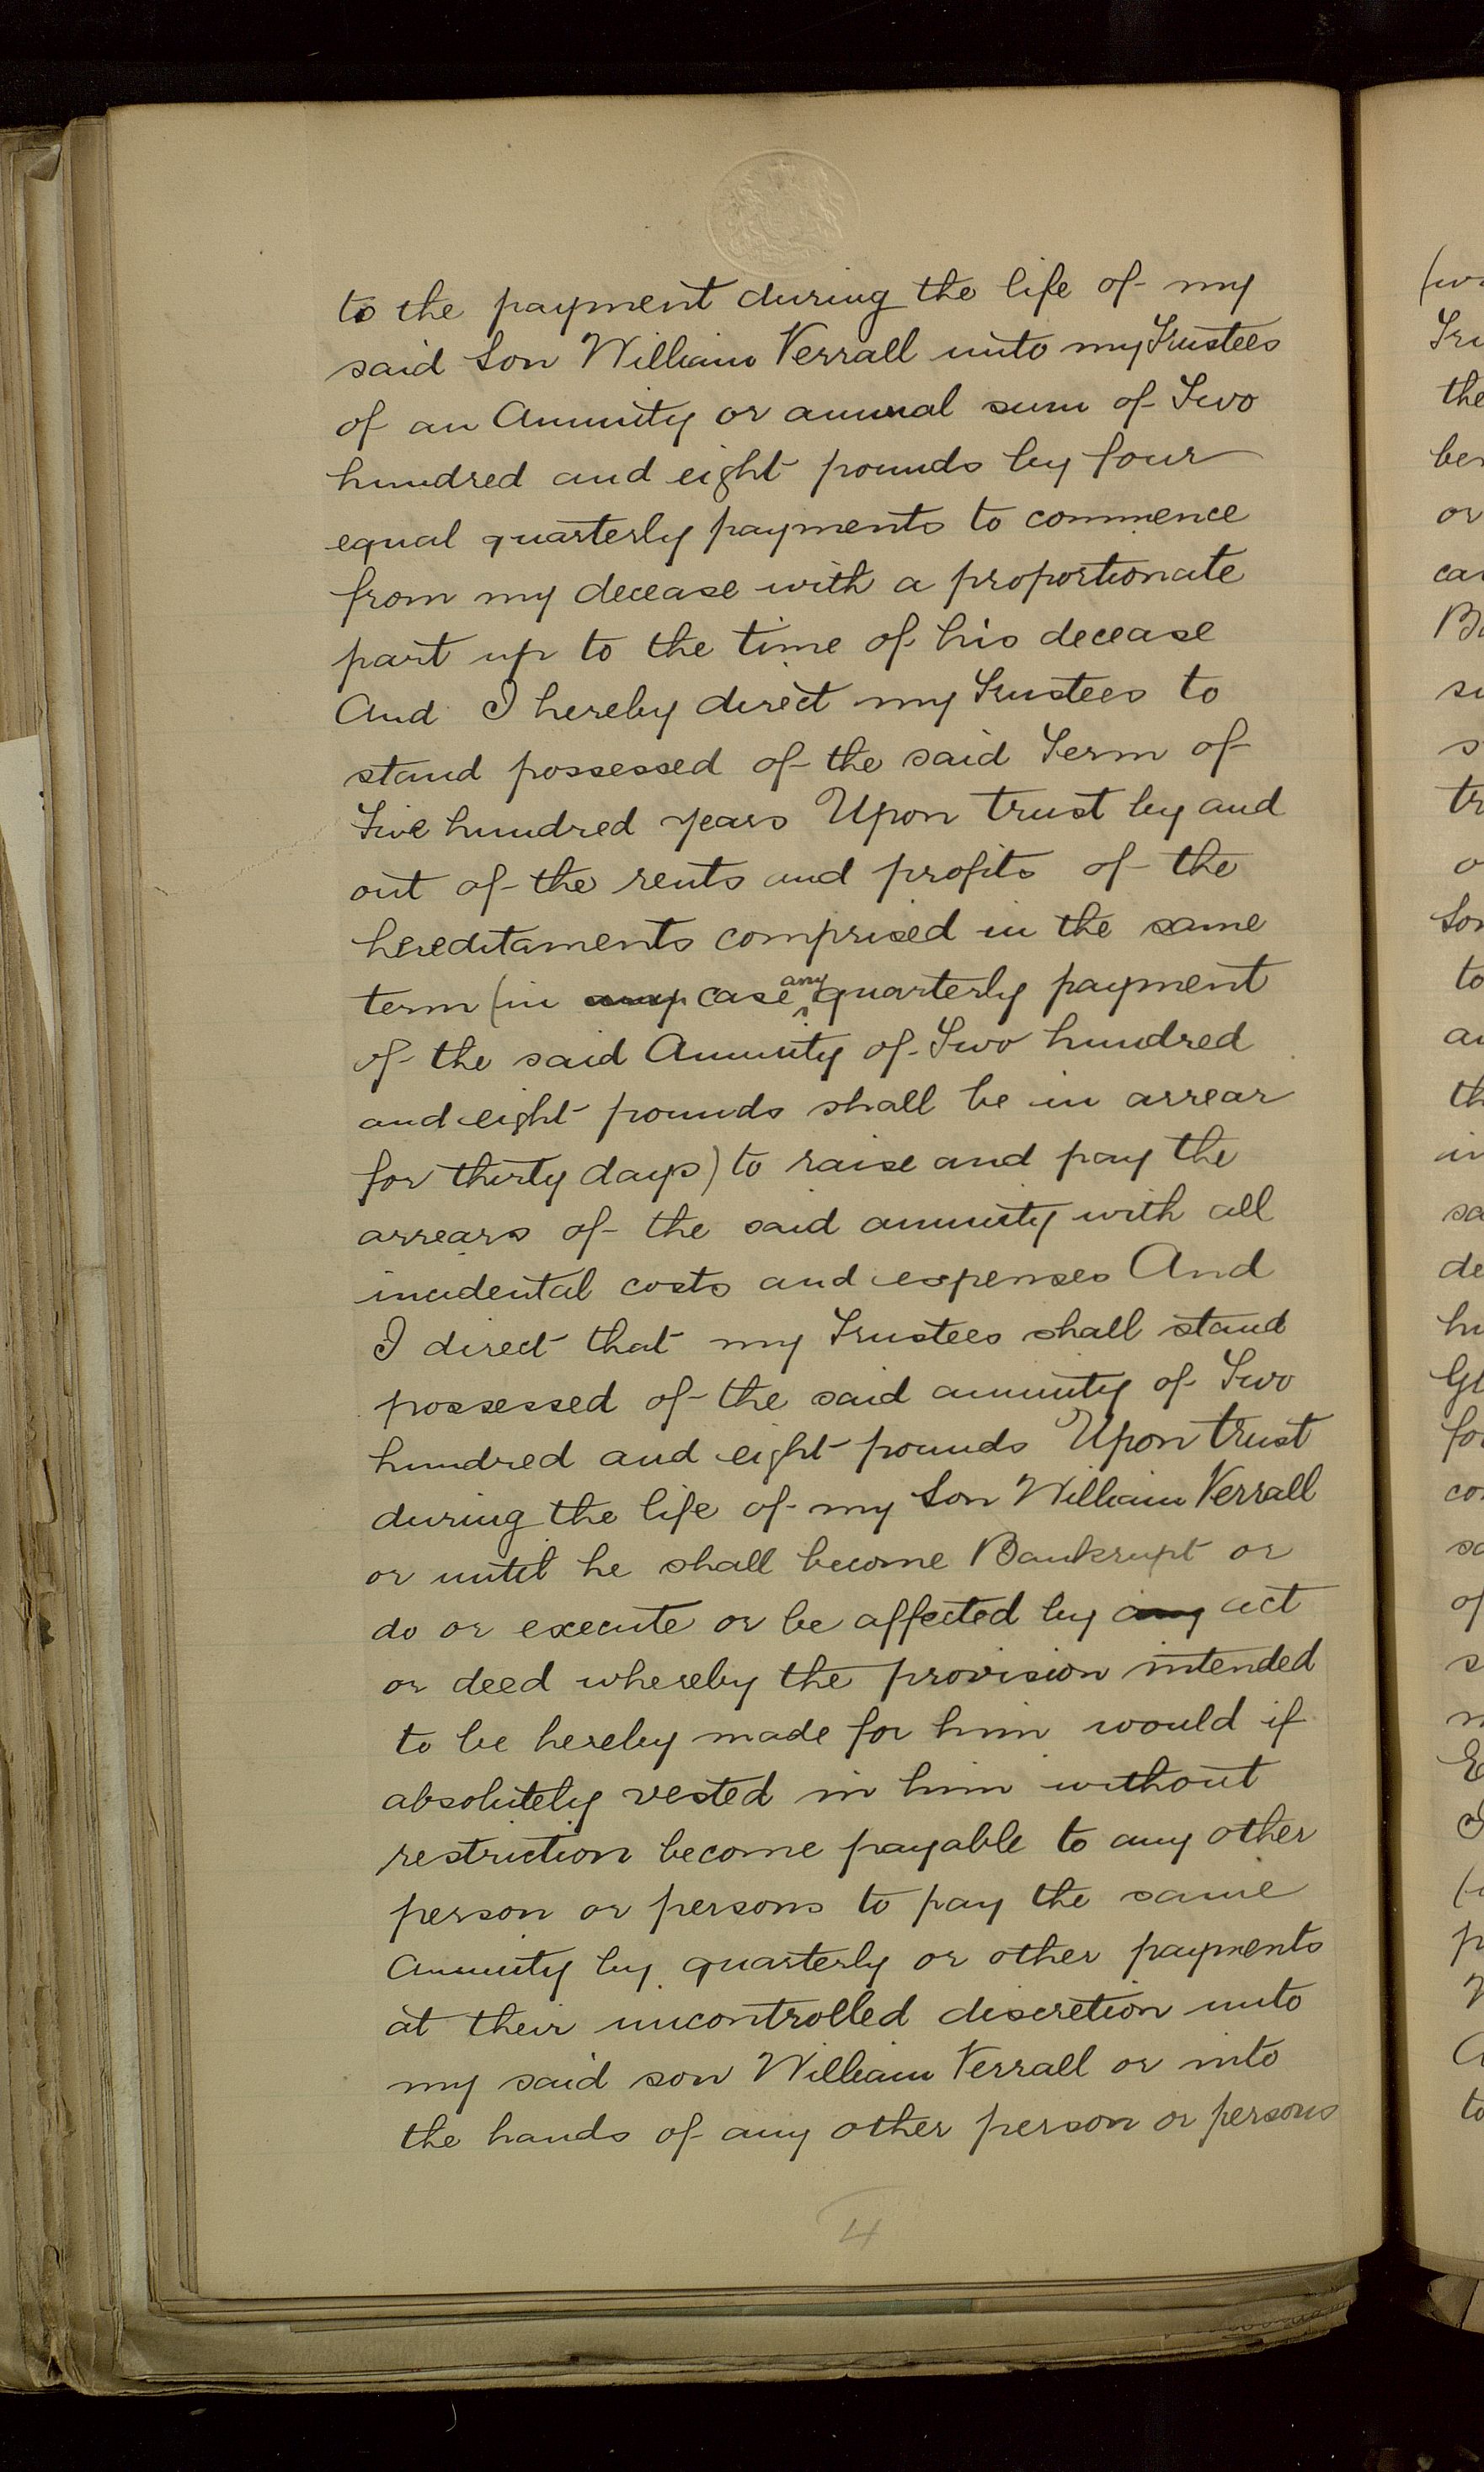 to the payment during the life of my
said Son William Verrall unto my Trustees
of an Annuity or annual sum of Two
hundred and eight pounds by four
equal quarterly payments to commence
from my decease with a proportionate
part up to the time of his decease
And I hereby direct my Trustees to
stand possessed of the said Term of
Five hundred years Upon trust by and
out of the rents and profits of the
hereditaments comprised in the same
term (in any case any quarterly payment
of the said Annuity of Two hundred
and eight pounds shall be in arrear
for thirty days) to raise and pay the
arrears of the said annuity with all
incidental costs and expenses And
I direct that my Trustees shall stand
possessed of the said annuity of Two
hundred and eight pounds Upon trust
during the life of my Son William Verrall
or until he shall become Bankrupt or
do or execute or be affected by any act
or deed whereby the provision intended
to be hereby made for him would if
absolutely vested in him without
restriction become payable to any other
person or persons to pay the same
Annuity by quarterly or other payments
at their uncontrolled discretion unto
my said son William Verrall or into
the hands of any other person or persons
4